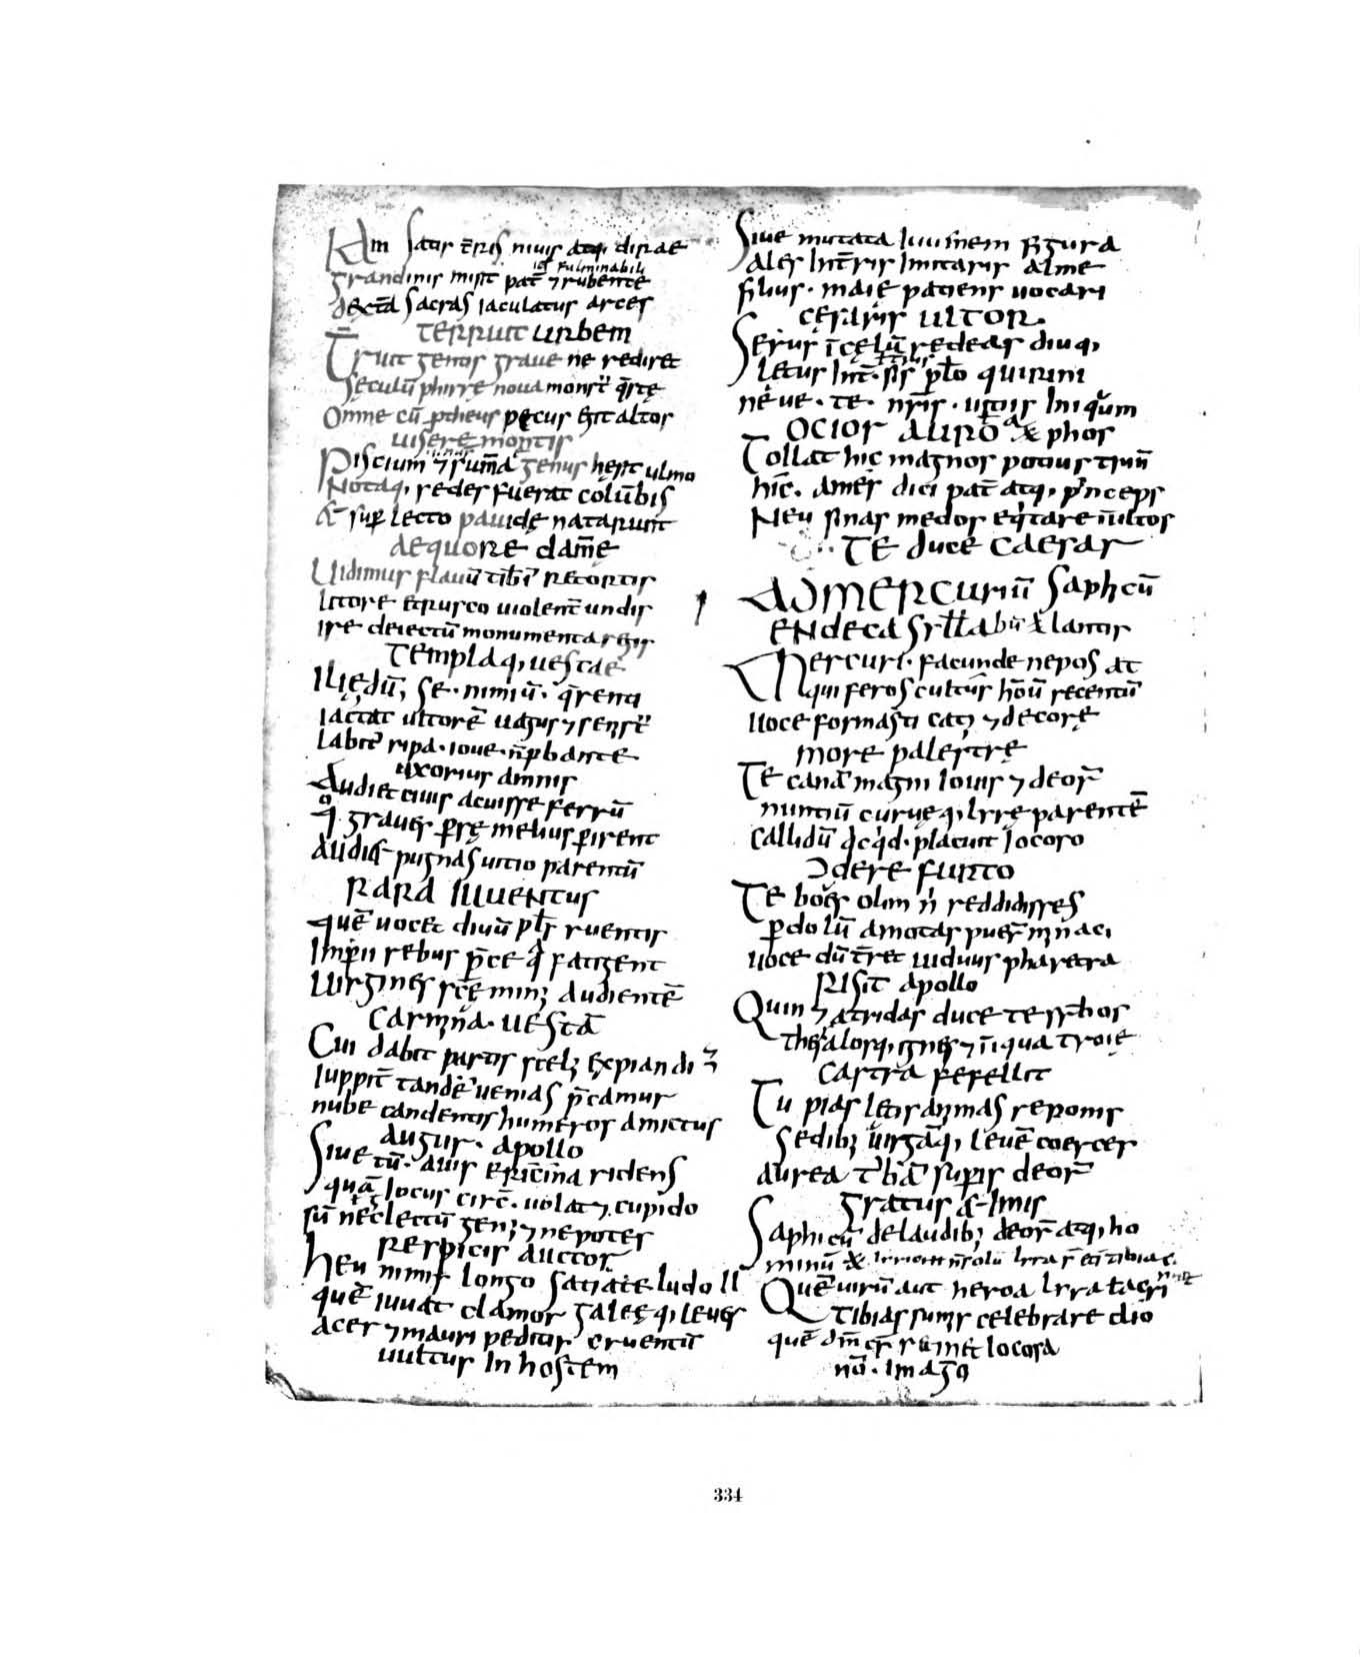 Iam satis t̄ris nivis atq; dirae
grandinis misit pat̄ ⁊ rubente
id ē fulminabili
dext̄a sacras iaculatus arces
terruit urbem
T̄ruit gentis grave ne rediret
seculū pirre nova monstr̄ q̄ste
Omne cū p̄theus pecus egit altos
visere montis
Piscium ⁊ sum̄a genus hesit ulmo
Notaq; sedes fuerat colūbis
& sup̄ lecto pavide natarunt
aequore dam̄e
Vidimus flavū tib̄i retortis
litore etrusco violent̄ undis
ire deiectū monumenta regis
Templaq; vestae
Iliē dū; se · nimiū · q̄renti
iactat ultorē vagus ⁊ senistr̄
labit̄ ripa · iove · n̄ p̄bante
uxorius amnis
Audiet civis acuisse ferrū
q̊ graves p̄se melius p̄irent
Audi& pugnas vitio parentū
Rara iuventus
quē vocet divū pl̄s ruentis
Imp̄ii rebus p̄ce q̄ fatigent
virgines sc̄e min; audientē
carm̄na · vestā
Cui dabit partis scel; expiandi ⁊
iuppit̄ tandē venias p̄camur
nube candentis humeros amictus
augur · apollo
Sive tū · avis ericīna ridens
quā iocus circ̄ · volat ⁊ cupido
sū neclectū gen; ⁊ nepotes
respicis auctor
heu nimis longo satiate ludo
quē iuvat clamor galeeq; leves
acer ⁊ mauri peditis cruentū
vultus in hostem
Sive mutata iuvenem figura
ales int̄ris imitaris alme
filius · maie patiens vocari
cesaris ultor
Serus ī cēlū redeas diuq;
letus int̄ · sis pl̄o quirini
neve · te · nr̄is · vitiis iniquum
ocior aurā
Tollat hic magnos potius triūn
hīc · ames dici pat̄ atq; princeps
Neu sinas medos eq'tare īultos
TE duce caesar
AD MERCuriū Saphcū
ENdeca syll̄abū
Mercuri · facunde nepos at
qui feros cultus hōū recentū
voce formasti cat; ⁊ decore
more palestre
Te canā magni iovis ⁊ deor̄
nuntiū curveq; lyre parentē
callidū q'cq'd · placuit iocoso
Ↄdere furto
Te boves olim n' reddidisses
p̄ dolū amotas puer̄ m̄naci
voce dū t̄ret viduus pharetra
Risit apollo
Quin ⁊ atridas duce te
thesalosq; ignes ⁊ īiqua troie
castra fefellit
Tu pias letis an̄mas reponis
Sedib; virgāq; levē coerces
aurea t'bā sup̄is deor̄
gratus & imis
Saphicū de laudib; deor̄ atq; ho
minū
Quē virū aut heroa lyra t̄ acri
Tibia sumis celebrare clio
quē dm̄ cȳ recin& iocosa
nō · imago
334